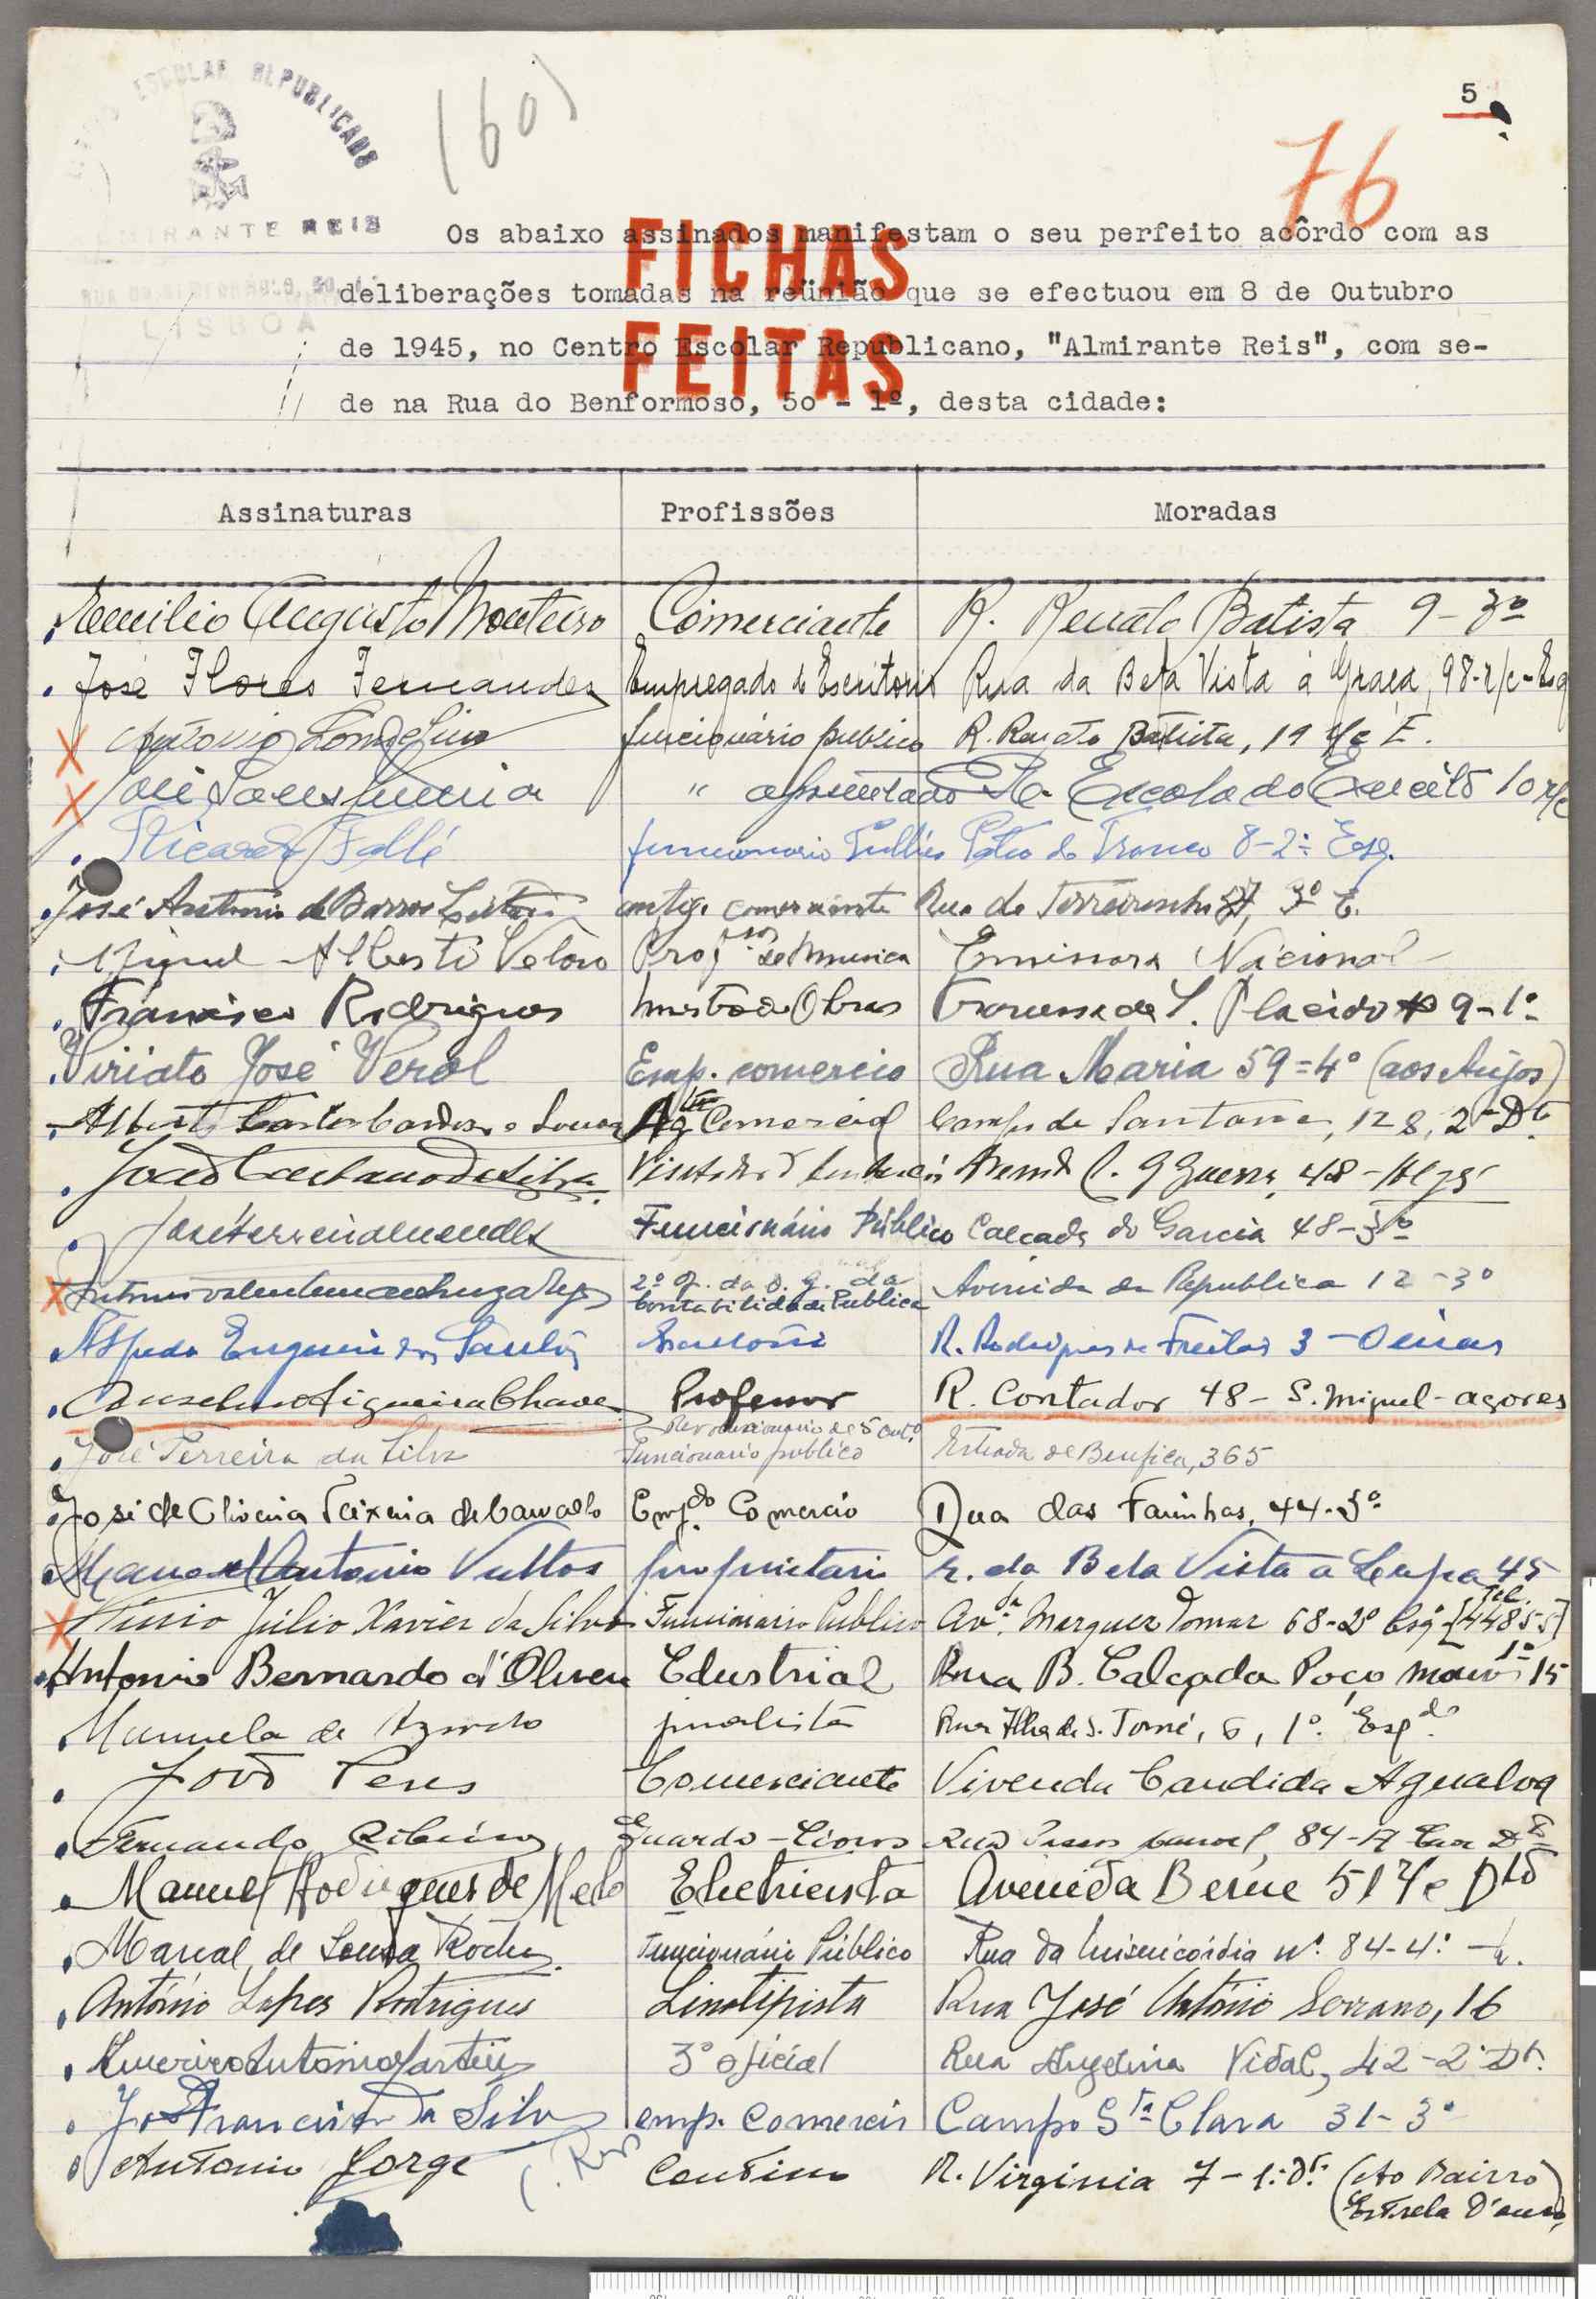 ESCOLAR REPUBLICANO
ALMIRANTE REIS
LISBOA
(60)
5
76
FICHAS
FEITAS
Os abaixo assinados manifestam o seu perfeito acôrdo com as
deliberações tomadas na reünião que se efectuou em 8 de Outubro
de 1945, no Centro Escolar Republicano, "Almirante Reis", com se-
de na Rua do Benformoso, 5o - 1º, desta cidade:
Assinaturas Profissões Moradas
Emilio Augusto Monteiro Comerciante R. Renato Batista 9-3º
José Flores Fernandes Empregado de Escritorio Rua da Bela Vista à Graça, 98-r/c-Esq
António funcionário publico R. Renato Batista, 19 r/c E.
José " aposentado Escola do Exercito 10 r/c
Ricardo funcionario Pateo do Tronco 8-2º Esq.
José Antonio de Barros antigo comerciante Rua do Terreirinho 3º E.
Miguel Alberto Veloso Profsor de Musica Emissora Nacional
Francisco Rodrigues Mestre de Obras Travessa de S. Placido 9-1º
Viriato José Verol Emp. comercio Rua Maria 59=4º (aos Anjos)
Alberto Carlos Cardoso e Sousa Agte Comercial Campo de Santana, 128, 2º Dto
João Caetano da Silva
José Ferreira Mendes Funcionário Público Calçada do Garcia 48-3º
2º of. da D. g. da Avenida da Republica 12-3º
Contabilidade Publica
Alfredo Eugenio dos Santos R. Rodrigues de Freitas 3 - Oeiras
Anselmo Figueira Chaves Professor R. Contador 48 - S. Miguel - açores
Revolucionario de 5 outº
José Ferreira da Silva Funcionario publico Estrada de Benfica, 365
José de Oliveira Teixeira de Carvalho Empdo. Comercio Rua das Farinhas, 44-3º
Manuel Antonio Vultos proprietario r. da Bela Vista a Lapa 45
Julio Xavier da Silva Funcionario Publico Avª. Marquez Tomar 68-2º Esqº [Tel. 44855]
Antonio Bernardo d'Oliveira Edustrial Rua B. Calçada Poço 1º 15
Manuela de Azevedo jornalista Rua Ilha de S. Tomé, 6, 1º. Esqdo.
João Peres Comerciante Vivenda Candida Agualva
Fernando Ribeiro Guarda-Livros Rua Passos Manoel, 84
Manuel Rodrigues de Melo Electricista Avenida Berne 51 r/c Dto
Marcal de Sousa Rocha Funcionário Público Rua da Misericórdia nº. 84-4º
António Lopes Rodrigues Linotipista Rua José António Serrano, 16
Americo Antonio Martins 3º oficial Rua Angelina Vidal, 42-2º Dt.
José Francisco da Silva emp. comercio Campo Sta Clara 31-3º
Antonio Jorge Contino R. Virginia 7-1º Dt. (Ao Bairro
Estrela D'ouro)